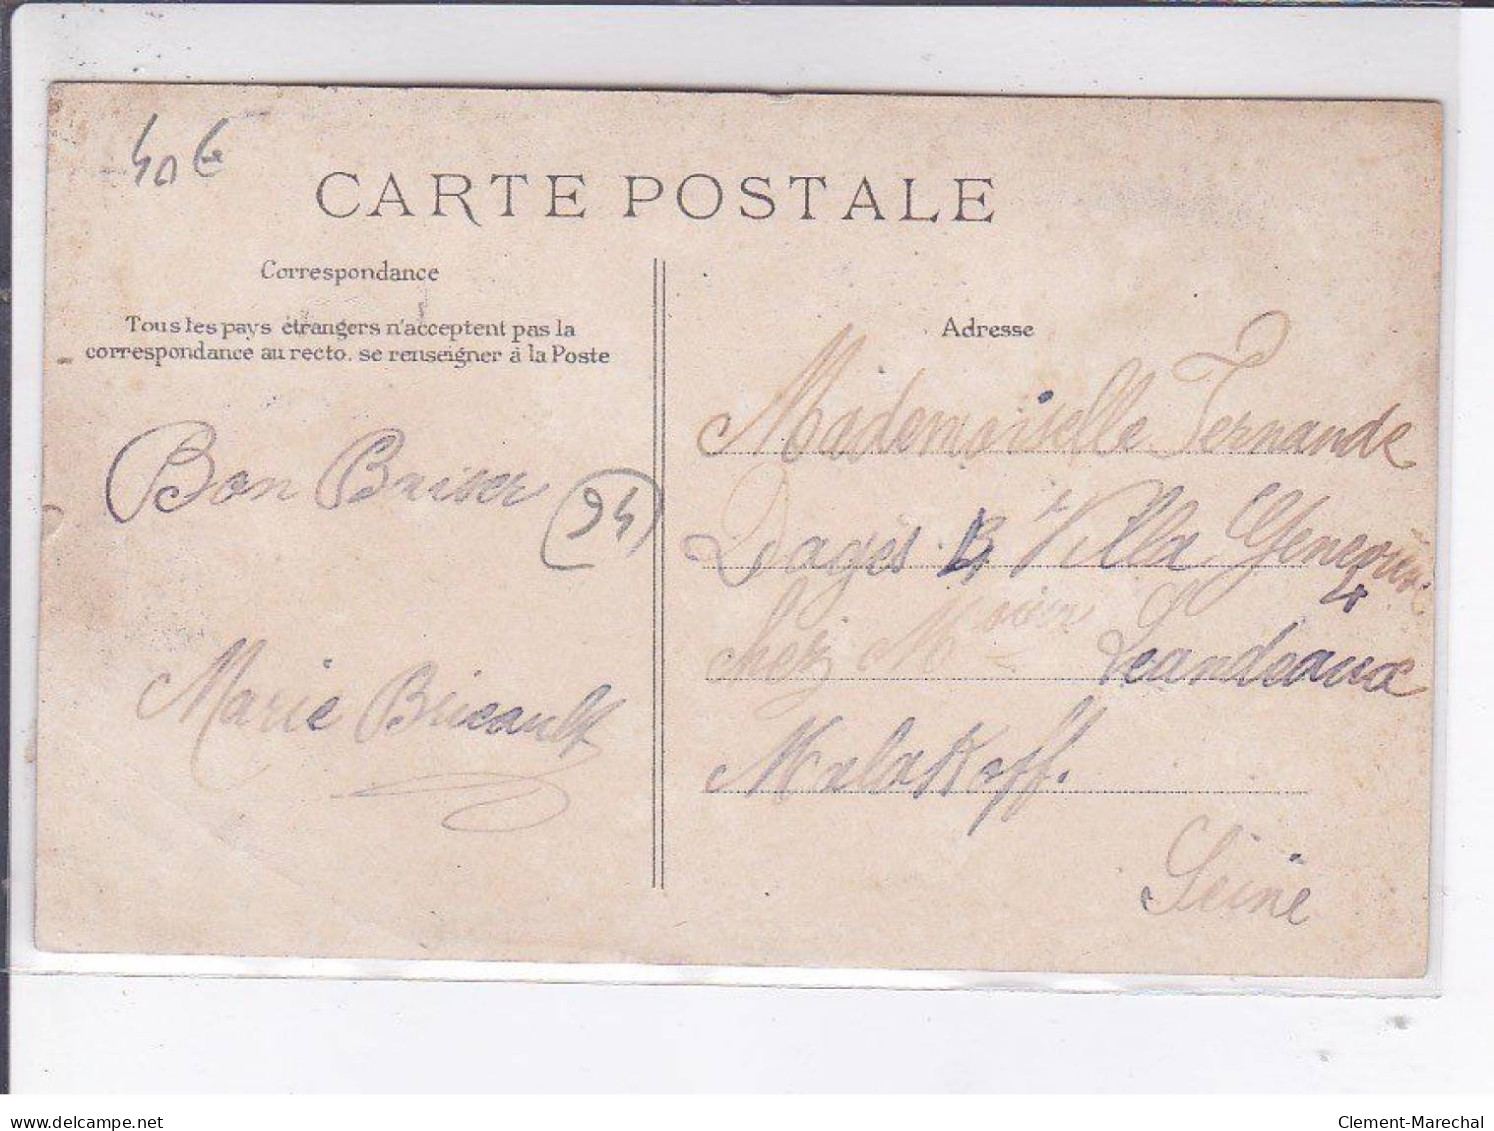 40€
CARTE POSTALE
Correspondance
Tous les pays étrangers n'acceptent pas la
correspondance au recto. se renseigner à la Poste
Bon Baiser
94
Marie Bricault
Adresse
Mademoiselle Fernande
Dagès Villa
4
chez Leandeaux
Malakoff.
Seine
delcampe.net
Clement-Marechal